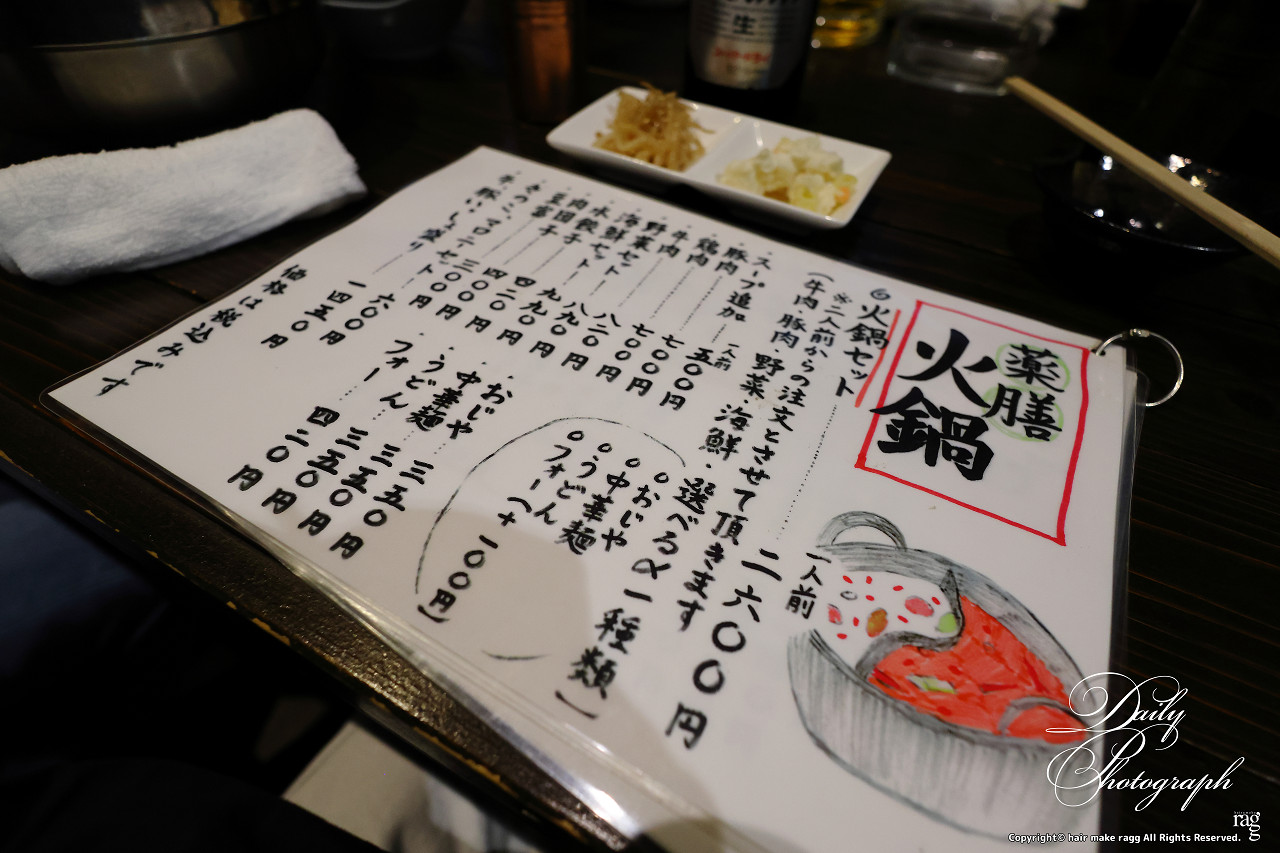 薬膳
火鍋
火鍋セット 一人前 二六〇〇円
※二人前からの注文とさせて頂きます
(牛肉・豚肉・野菜・海鮮・選べる〆一種類)
○おじや
○中華麺
○うどん
○フォー(+一〇〇円)
・スープ追加 一人前 五〇〇円
・豚肉 七〇〇円
・鶏肉 七〇〇円
・牛肉 八二〇円
・野菜セット 八九〇円
・海鮮セット 九九〇円
・水餃子 四二〇円
・肉団子 四二〇円
・豆苗 三〇〇円
・きのこ、マロニーセット 六〇〇円
・牛・豚 盛り 一四五〇円
・おじや 三五〇円
・中華麺 三五〇円
・うどん 三五〇円
・フォー 四二〇円
価格は税込みです
生
Daily
Photograph
ragg
Copyright© hair make ragg All Rights Reserved.